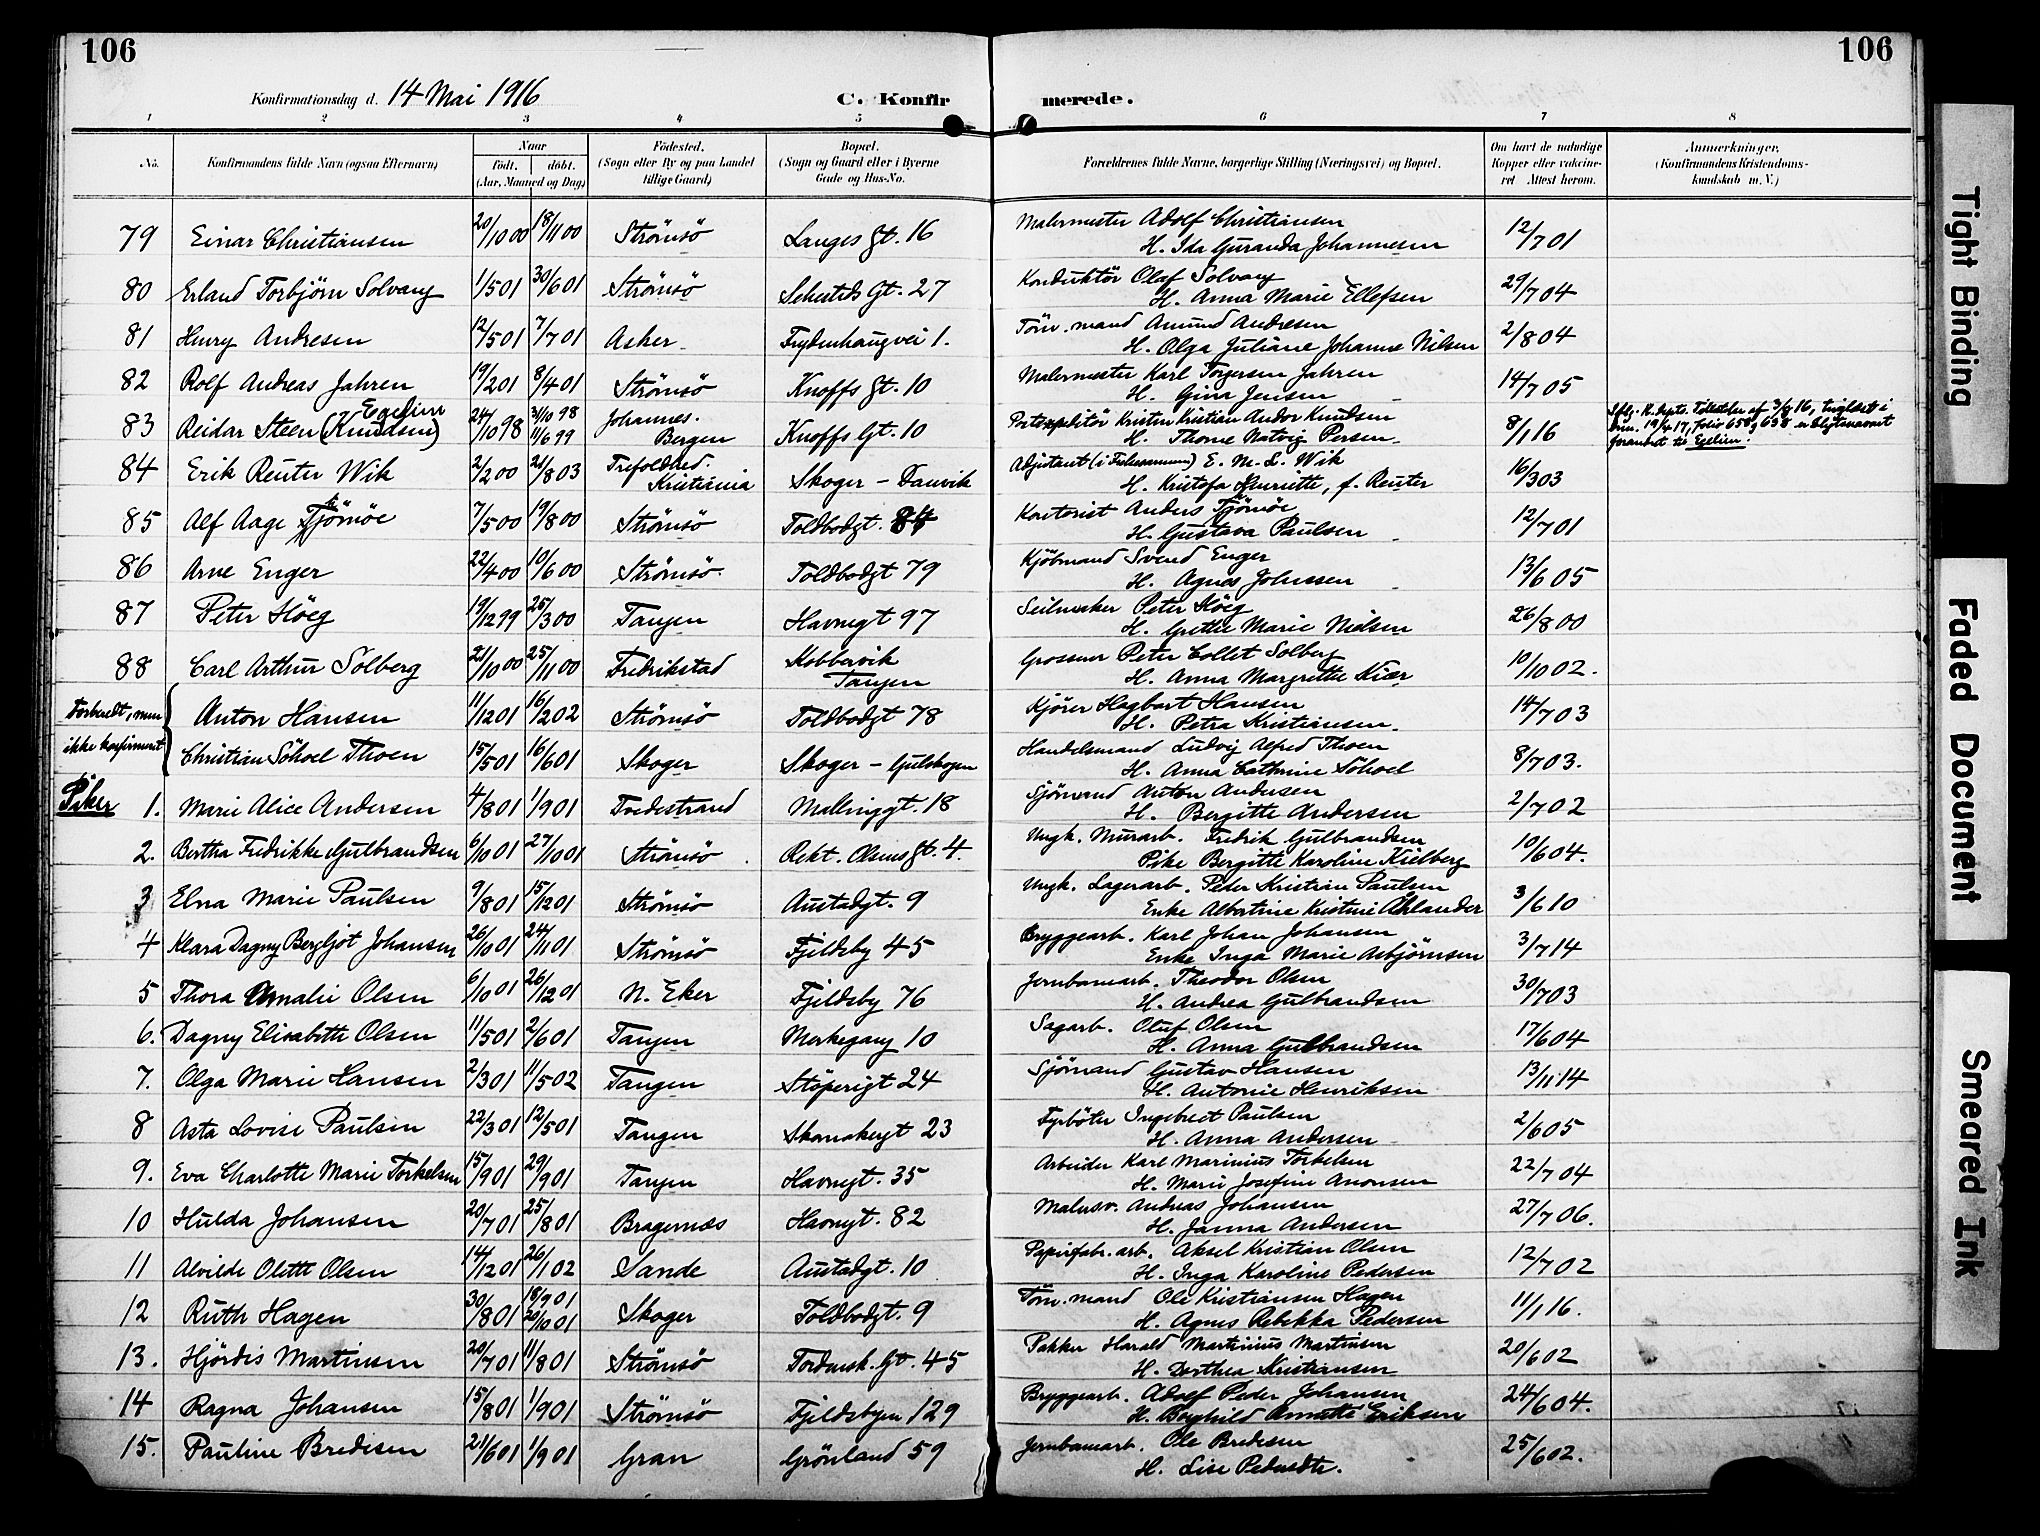 106
106
Konfirmationsdag d. 14 Mai 1916
C. Konfir
merede.
1 2 3 4 5 6 7 8
No.
Konfirmandens fulde Navn (ogsaa Efternavn)
Naar
født. døbt.
(Aar, Maaned og Dag)
Fødested.
(Sogn eller By og paa Landet
tillige Gaard)
Bopæl.
(Sogn og Gaard eller i Byerne
Gade og Hus-No.
Forældrenes fulde Navne, borgerlige Stilling (Næringsvei) og Bopæl.
Om havt de naturlige
Kopper eller vaccine-
ret Attest herom.
Anmærkninger,
(Konfirmandens Kristendoms-
kundskab m. V.)
79 Einar Christiansen 20/10 00 18/11 00 Strømsö Langes gt. 16 Malermester Adolf Christiansen 12/7 01
H. Ida Guranda Johannesen
80 Erland Torbjörn Solvang 1/5 01 30/6 01 Strömsö Schesteds Gt. 27 Konduktör Olaf Solvang 29/7 04
H. Anna Marie Ellefsen
81 Henry Andresen 12/5 01 7/7 01 Asker Frydenhaugvei 1. Töm.mand Amund Andresen 2/8 04
H. Olga Juliane Johanne Nilsen
82 Rolf Andreas Jahren 19/2 01 8/4 01 Strömsö Knoffs gt. 10 Malermester Karl Torgersen Jahren 14/7 05
H. Gina Jensen
83 Reidar Steen (Knudsen) Egelien 24/10 98 31/10 98 11/6 99 Johannes. Bergen Knoffs Gt. 10 Portoexpeditör Kristen Kristian Andor Knudsen 8/1 16
H. Thorne Natvig Persen
84 Erik Reuter Wik 2/2 00 21/8 03 Trefoldhed. Kristiania Skoger - Danvik Adjutant (i Frelsesarmeen) E. M. L. Wik 16/3 03
H. Kristofa Henriette, f. Reuter
85 Alf Aage Tjömöe 7/5 00 19/8 00 Strömsö Toldbodgt. 84 Kontorist Anders Tjömöe 12/7 01
H. Gustava Paulsen
86 Arne Enger 22/4 00 10/6 00 Strömsö Toldbodgt 79 Kjöbmand Svend Enger 13/6 05
H. Agnes Johnssen
87 Peter Höeg 19/12 99 25/3 00 Tangen Havnegt 97 Seilmaker Peter Höeg 26/8 00
H. Grethe Marie Nielsen
88 Carl Arthur Solberg 21/10 00 25/11 00 Fredrikstad Kobbervik Tangen Grosserer Peter Collet Solberg 10/10 02.
H. Anna Margrethe Kiær
Forberedt, men
ikke konfirmeret
Anton Hansen 11/12 01 16/2 02 Strömsö Toldbodgt 78 Kjörer Hagbart Hansen 14/7 03
H. Petra Kristiansen
Christian Söhoel Thoen 15/5 01 16/6 01 Skoger Skoger - Gulskogen Handelsmand Ludvig Alfred Thoen 8/7 03.
H. Anna Cathrine Söhoel
Piker 1. Marie Alice Andersen 4/8 01 1/9 01 Tvedestrand Mallinggt. 18 Sjömand Anton Andersen 2/7 02
H. Bergitte Andersen
2. Bertha Fredrikke Gulbrandsen 6/10 01 27/10 01 Strömsö Rekt. Olsens gt. 4. Ungk. Murarb. Fredrik Gulbrandsen 10/6 04.
Pike Bergitte Karoline Kielberg
3 Elna Marie Paulsen 9/8 01 15/12 01 Strömsö Austadgt. 9 Ungk. Lagerarb. Peder Kristian Paulsen 3/6 10
Enke Albertine Kristine Åhlander
4 Klara Dagny Bergljot Johansen 26/10 01 24/11 01 Strömsö Fjeldsby 45 Bryggearb. Karl Johan Johansen 3/7 14
Enke Inga Marie Asbjörnsen
5 Thora Amalie Olsen 6/10 01 26/12 01 N. Eker Fjeldsby 76 Jernbanearb. Theodor Olsen 30/7 03
H. Andrea Gulbrandsen
6. Dagny Elisabeth Olsen 11/5 01 2/6 01 Tangen Merkegang 10 Sagarb. Oluf Olsen 17/6 04
H. Anna Gulbrandsen
7. Olga Marie Hansen 2/3 01 11/5 02 Tangen Støperigt 24 Sjömand Gustav Hansen 13/11 14
H. Antonie Henriksen
8 Asta Lovise Paulsen 22/3 01 12/5 01 Tangen Skomakergt 23 Fyrböter Ingebret Paulsen 2/6 05
H. Anna Andersen
9. Eva Charlotte Marie Torkelsen 15/9 01 29/9 01 Tangen Havnegt. 35 Arbeider Karl Marinius Torkelsen 22/7 04
H. Marie Josefine Aronsen
10 Hulda Johansen 20/7 01 25/8 01 Bragernæs Havnegt. 82 Malersv. Andreas Johansen 27/7 06.
H. Janna Andersen
11 Alvilde Olette Olsen 14/12 01 26/1 02 Sande Austadgt. 10 Papirfabr.arb. Aksel Kristian Olsen 12/7 02
H. Inga Karoline Pedersen
12 Ruth Hagen 30/8 01 18/9 01 20/10 01 Skoger Toldbodgt. 9 Töm.mand Ole Kristiansen Hagen 11/1 16.
H. Agnes Rebekka Pedersen
13. Hjördis Martinsen 20/7 01 11/8 01 Strömsö Tordensk. Gt. 45 Pakker Harald Martinius Martinsen 20/6 02
H. Dorthea Kristiansen
14 Ragna Johansen 15/8 01 1/9 01 Strömsö Fjeldsbyen 129 Bryggearb. Adolf Peder Johansen 24/6 04.
H. Borghild Annette Eriksen
15. Pauline Bredesen 21/6 01 1/9 01 Gran Grönland 59 Jernbanearb. Ole Bredesen 25/6 02.
H. Lise Pedersdtr.
Tight Binding
Faded Document
Smeared Ink